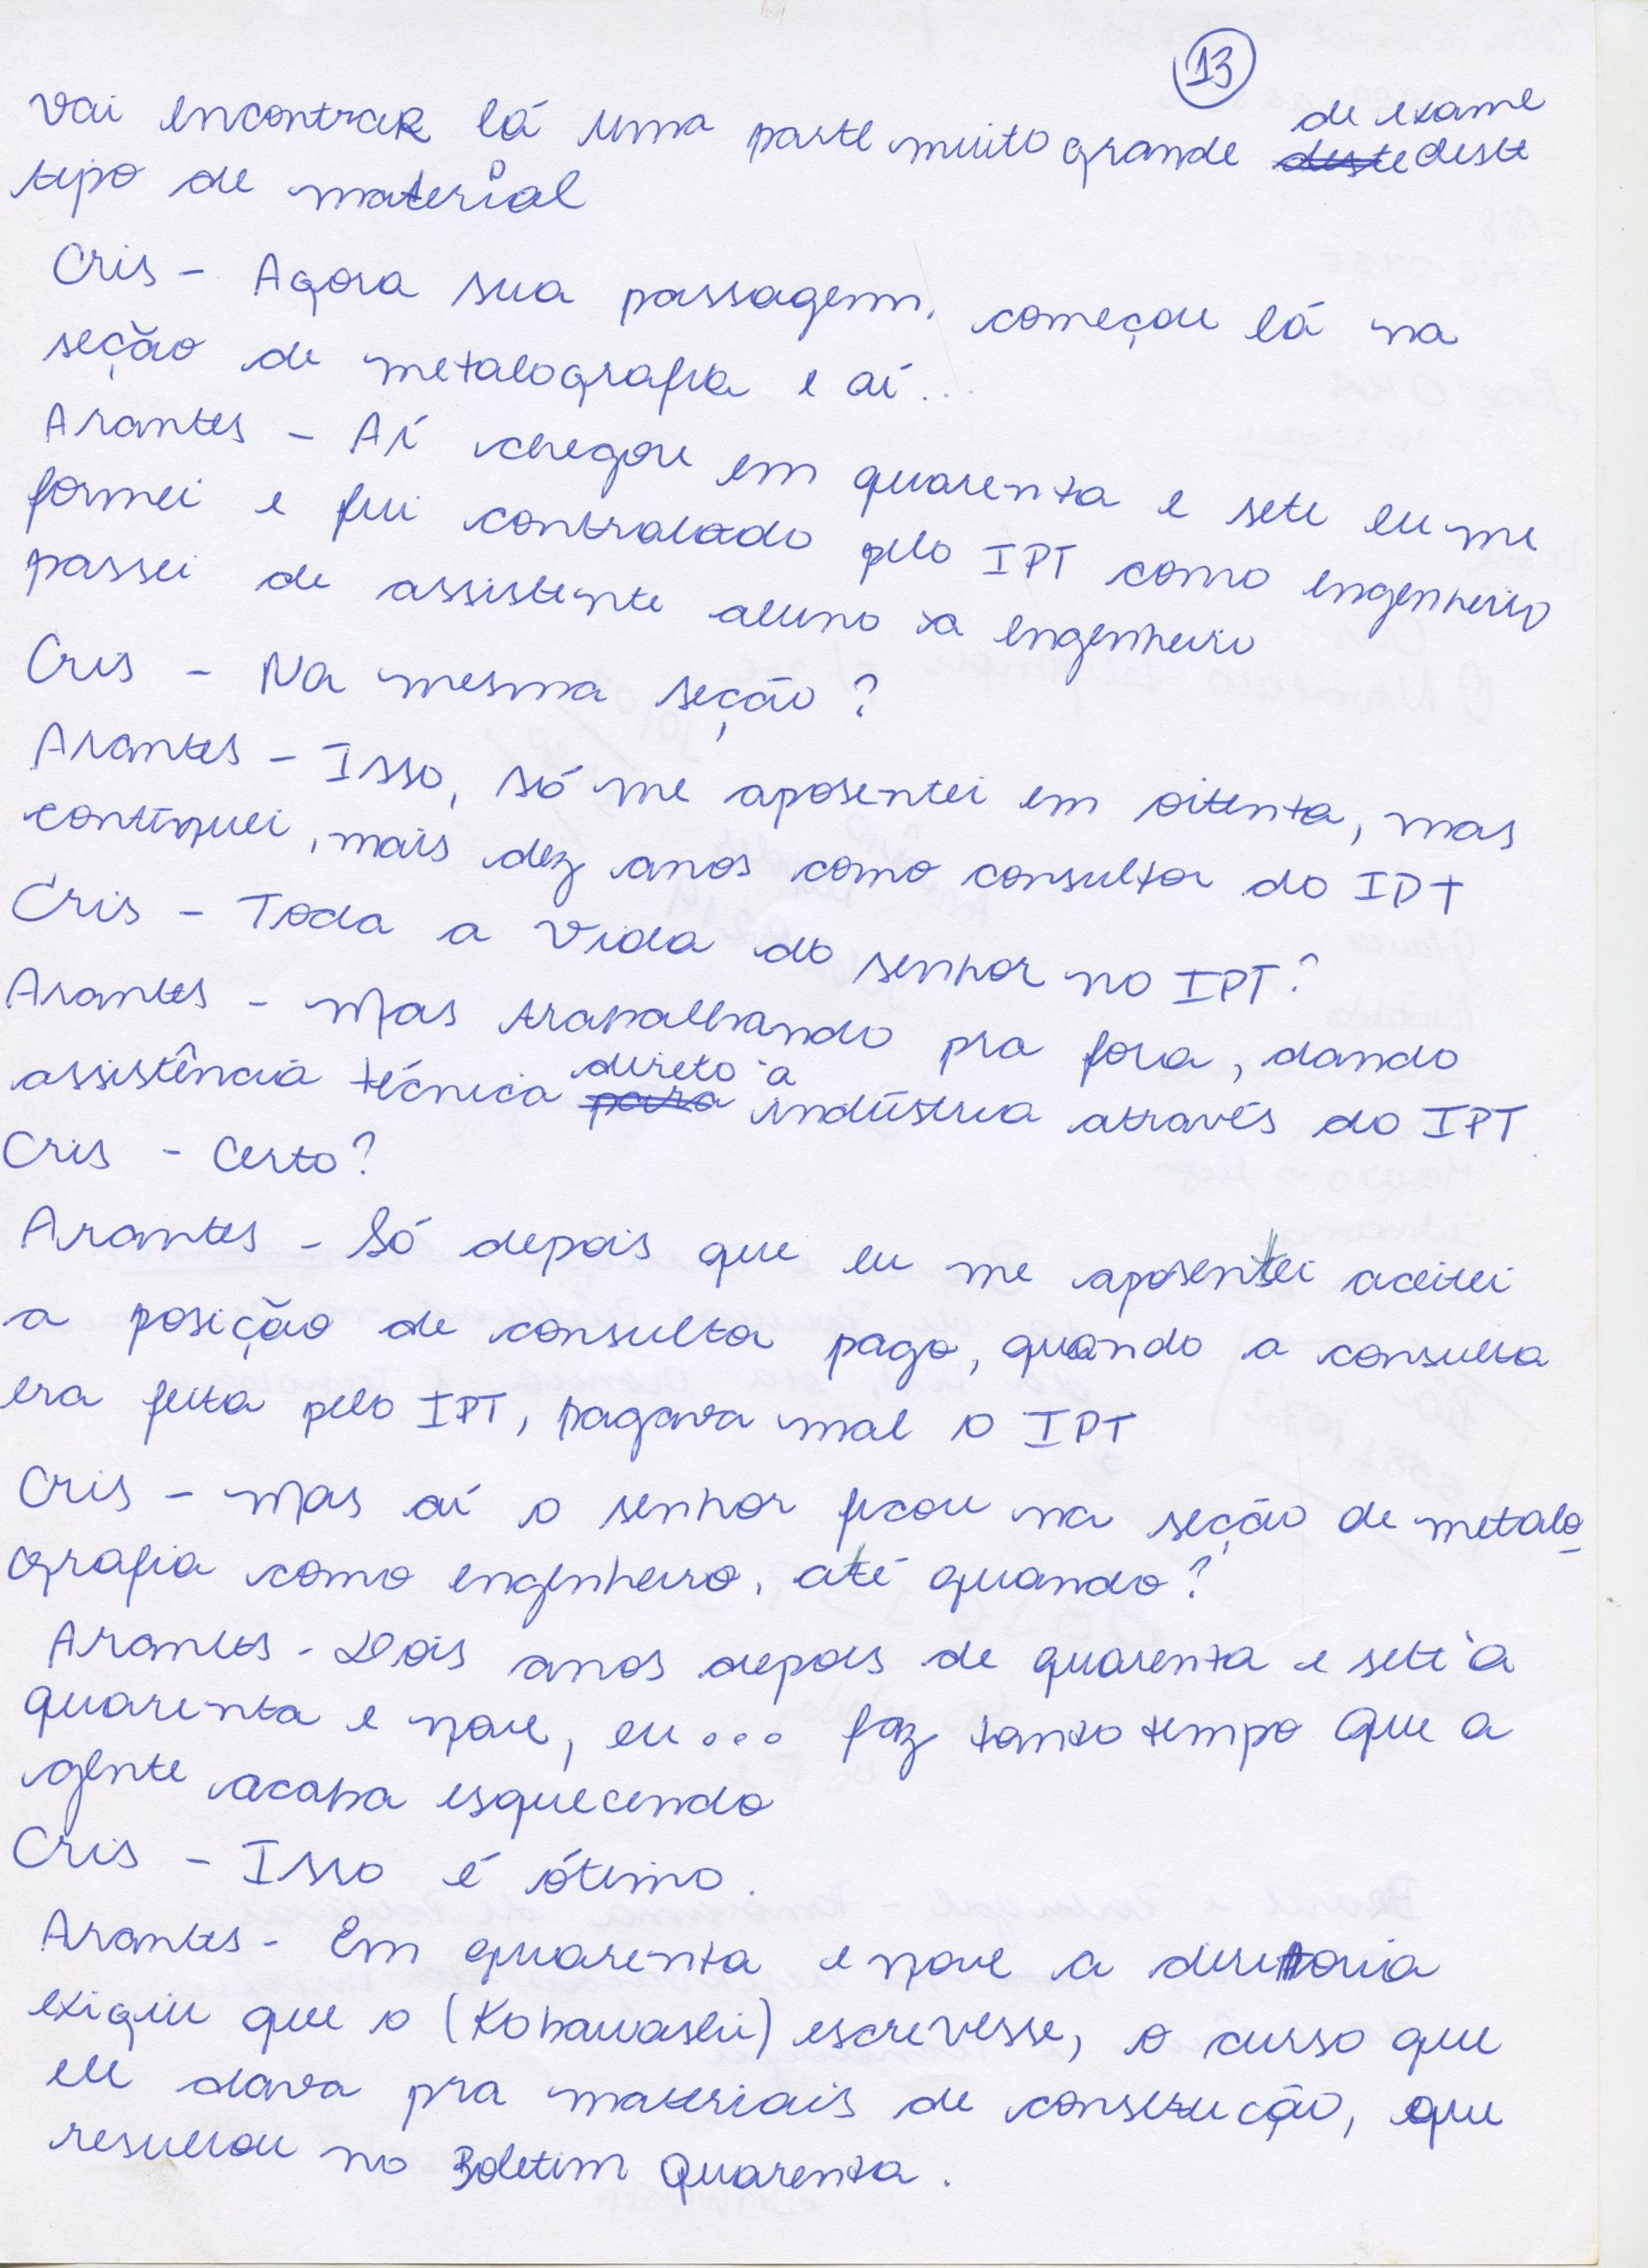 13
vai encontrar lá uma parte muito grande de exame deste
tipo de material
Cris - Agora sua passagem, começou lá na
seção de metalografia e aí...
Arantes - Aí chegou em quarenta e sete eu me
formei e fui contratado pelo IPT como engenheiro
passei de assistente aluno a engenheiro
Cris - Na mesma seção?
Arantes - Isso, só me aposentei em oitenta, mas
contínuei, mais dez anos como consultor do IPT
Cris - Toda a vida do senhor no IPT?
Arantes - Mas trabalhando pra fora, dando
assistência técnica direto à indústria através do IPT.
Cris - Certo?
Arantes - Só depois que eu me aposentei aceitei
a posição de consulta pago, quando a consulta
era feita pelo IPT, pagava mal o IPT
Cris - Mas aí o senhor ficou na seção de metalo
grafia como engenheiro, até quando?
Arantes - Dois anos depois de quarenta e sete à
quarenta e nove, eu... faz tanto tempo que a
gente acaba esquecendo
Cris - Isso é ótimo.
Arantes - Em quarenta e nove a diretoria
exigiu que o (Kobawashi) escrevesse, o curso que
ele dava pra materiais de construção, que
resultou no Boletim Quarenta.